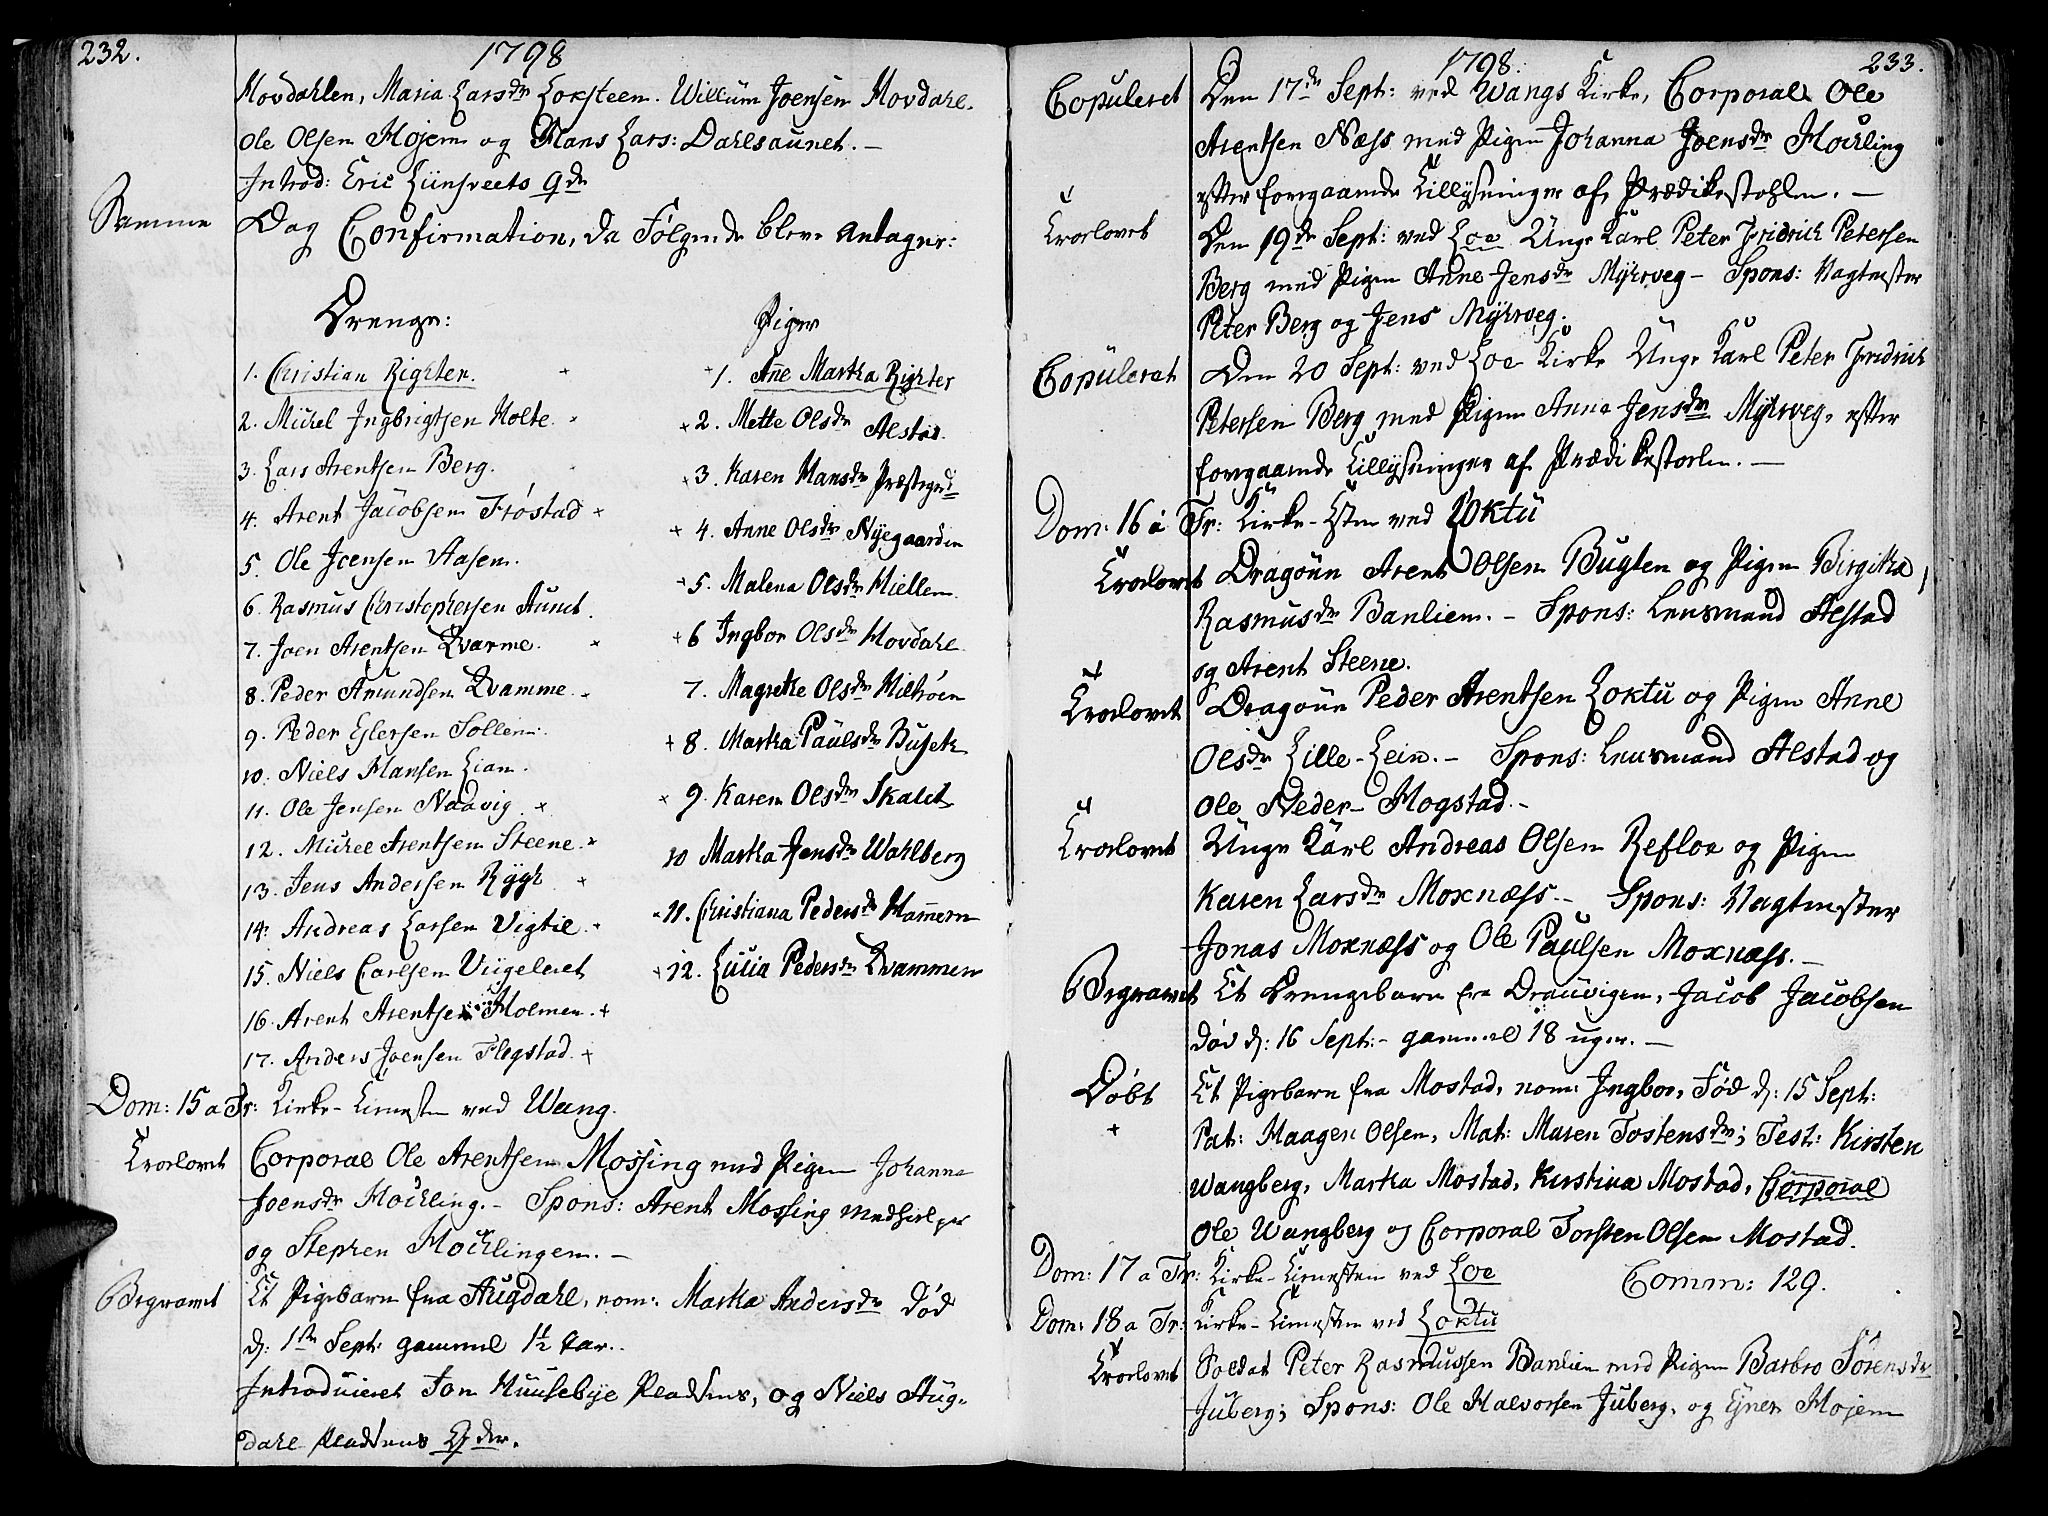 232.
1798
Hovdahlen, Maria Larsdr Loksteen. Willum Joensen Hovdahl.
Ole Olsen Mojem og Hans Lars: Dahlsaunet. –
Introd: Eric Lünsveets Qde
Samme Dag Confirmation, da Følgende bleve Antagne:
Drenge:
1. Christian Righter.
2. Michel Ingbrigtsen Holte.
3. Lars Arentsen Berg.
4. Arent Jacobsen Frøstad +
5. Ole Joensen Aasen.
6. Rasmus Christophersen Aunet.
7. Joen Arentsen Qvarme.
8. Peder Amundsen Qvamme.
9. Peder Eglersen Sollem.
10. Niels Hansen Lian.
11. Ole Jensen Naavig +
12. Michel Arentsen Steene. +
13. Jens Andersen Rygh +
14. Andreas Larsen Vigtil.
15. Niels Carlsen Viigeleret
16. Arent Arentsen Holmen. +
17. Anders Joensen Flegstad. +
Piger
+ 1. Añe Martha Righter
+ 2. Mette Olsdr Alstad.
+ 3. Karen Hansdr Præstegrd
+ 4. Anne Olsdr Nyegaarden
+ 5. Malena Olsdr Hiellem.
+ 6 Ingbor Olsdr Hovdahl.
7. Magrethe Olsdr Hiltrøen
+ 8. Martha Paulsdr Buseth
+ 9. Karen Olsdr Skalet
10 Martha Jensdr Wahlberg
11. Christiana Pedersdr Ham̃ern
+ 12. Lucia Pedersdr Qvammen
Dom: 15 a Tr: Kirke-Tienesten ved Wang.
Trolovet Corporal Ole Arentsen Mossing med Pigen Johanna
Joensdr Hoichling. – Spons: Arent Mossing Medhielper
og Stephen Hoichlingen. –
Begravet Et Pigebarn fra Augdahl, nom: Martha Andersdr Død
d: 1te Sept: gammel 1½ Aar.
Introduceret Jon Huusebye Pladsens, og Niels Aug-
dahl Pladsens Qder.
1798.
233.
Copuleret Den 17de Sept: ved Wangs Kirke, Corporal Ole
Arentsen Næss med Pigen Johanna Joensdr Hoichling
efter foregaaende Tillysninger af Prædikestohlen. –
Trolovet Den 19de Sept: ved Loe Unge Karl Peter Fridrich Petersen
Berg med Pigen Anne Jensdr Myhrveg – Spons: Vagtmester
Peter Berg og Jens Myhrveg.
Copuleret Den 20 Sept: ved Loe Kirke Unge Karl Peter Fredrich
Petersen Berg med Pigen Anne Jensdr Myhrveg, efter
foregaaende Tillysninger af Prædikestolen. –
Dom: 16 a Tr: Kirke-Tsten ved Loktu
Trolovet Dragoun Arent Olsen Buglen og Pigen Birgitha
Rasmusdr Banliem. – Spons: Lensmand Alstad
og Arent Steene.
Trolovet Dragoun Peder Arentsen Loktu og Pigen Anne
Olsdr Lille-Lein. – Spons: Lensmand Alstad og
Ole Neder-Hogstad. –
Trolovet Unge Karl Andreas Olsen Refloe og Pigen
Karen Larsdr Moxnæss. – Spons: Vagtmester
Jonas Moxnæss og Ole Paulsen Moxnæss. –
Begravet Et Drengebarn fra Drauvigen, Jacob Jacobsen
død d: 16 Sept: – gammel 18 uger. –
Døbt Et Pigebarn fra Mostad, nom: Ingbor, Fød d: 15 Sept:
+ Pat: Haagen Olsen, Mat: Maren Tostensdr; Test: Kirsten
Wangberg, Martha Mostad, Kirstina Mostad, Corporal
Ole Wangberg og Corporal Torsten Olsen Mostad.
Dom: 17 a Tr: Kirke-Tienesten ved Loe Comm: 129.
Dom: 18 a Tr: Kirke-Tienesten ved Loktu
Trolovet Soldat Peter Rasmussen Banlien med Pigen Barbro Sørensdr
Juberg; Spons: Ole Halvorsen Juberg, og Ejner Mojem